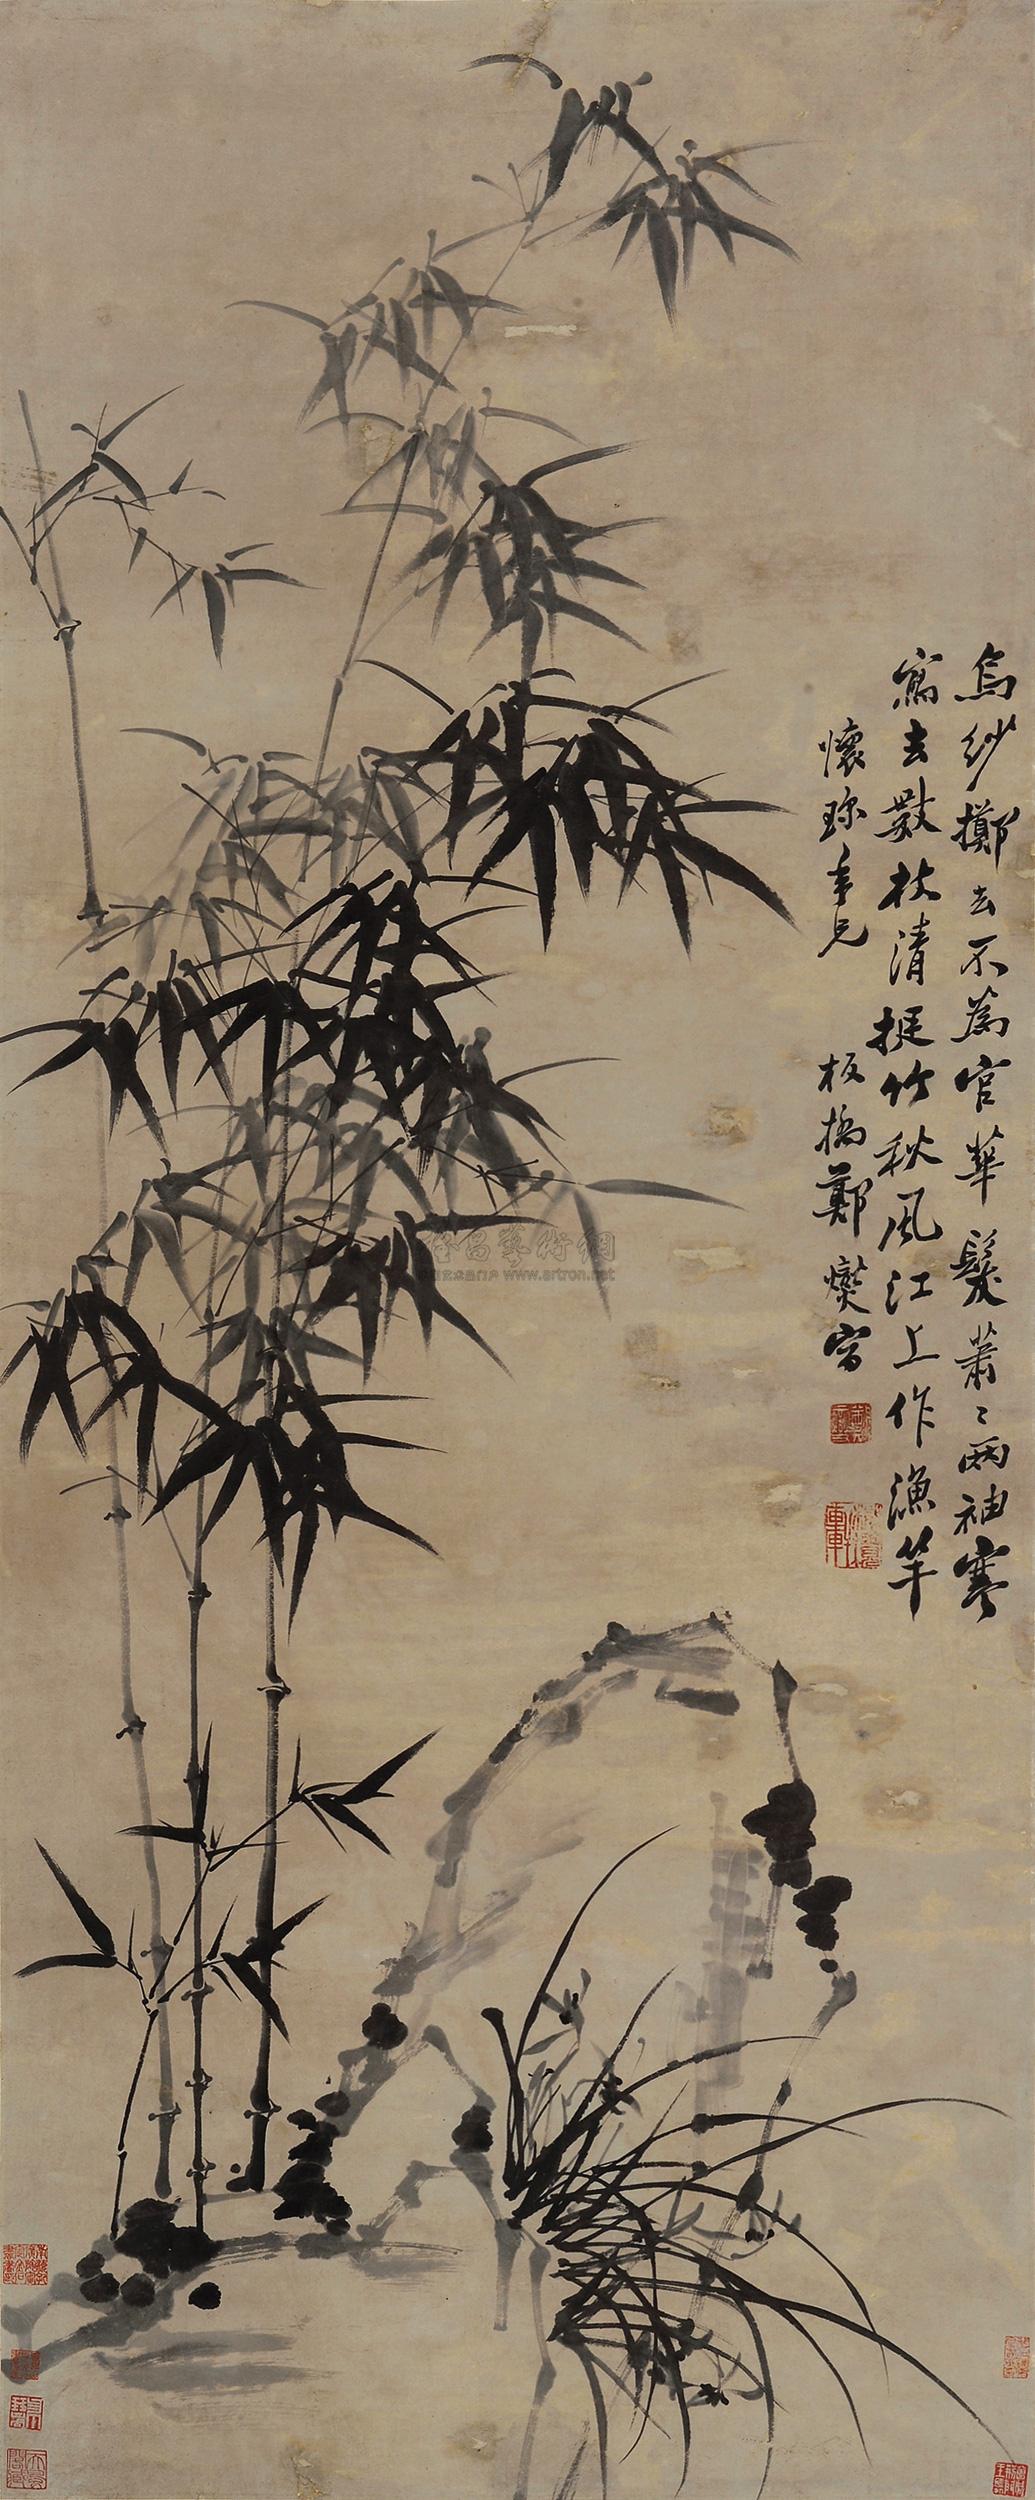 烏紗擲去不爲官華髮蕭〻兩袖寒
寫去數枝清挺竹秋風江上作漁竿
懷瑔年兄 板橋鄭燮寫
www.artron.net